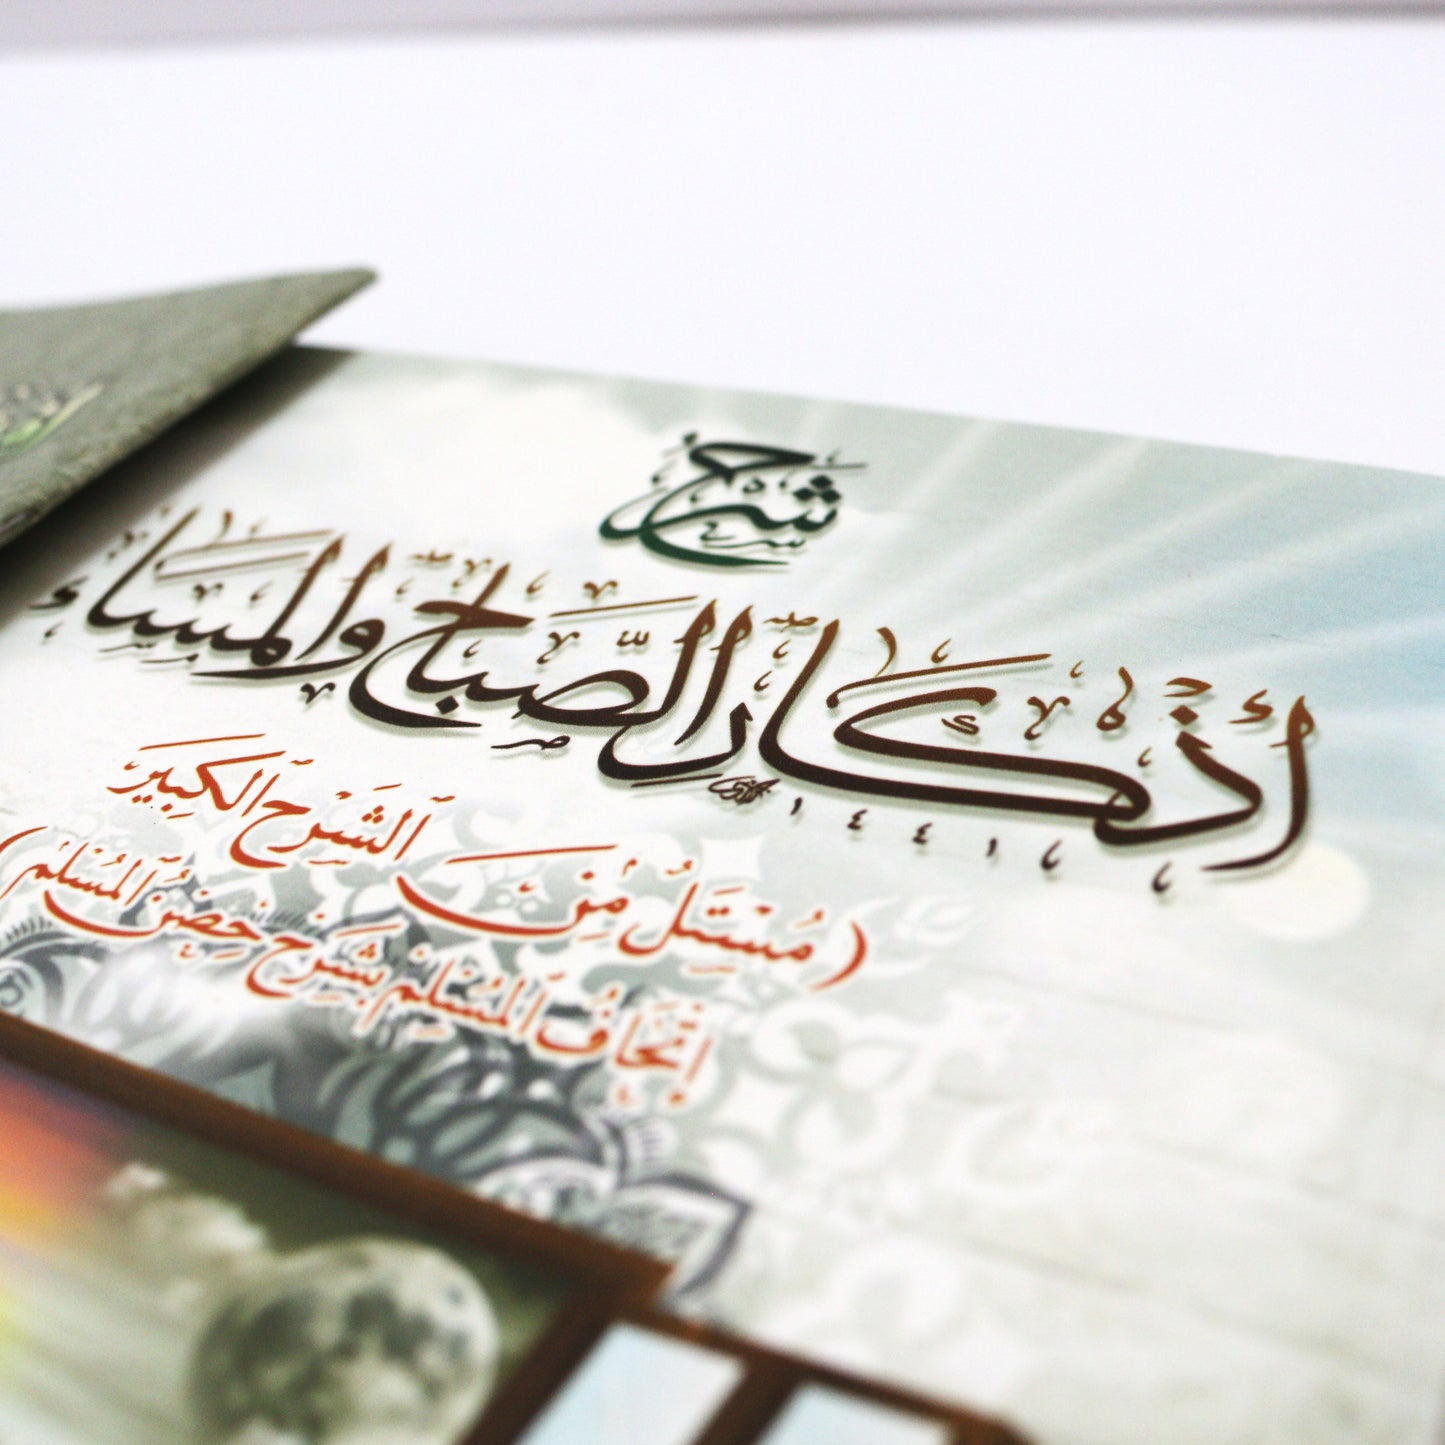 شرح
أذكار الصباح والمساء
(مُسْتَلٌّ مِنَ الشَّرْحِ الْكَبِيرِ
إِتْحَافُ الْمُسْلِمِ بِشَرْحِ حِصْنِ الْمُسْلِمِ)